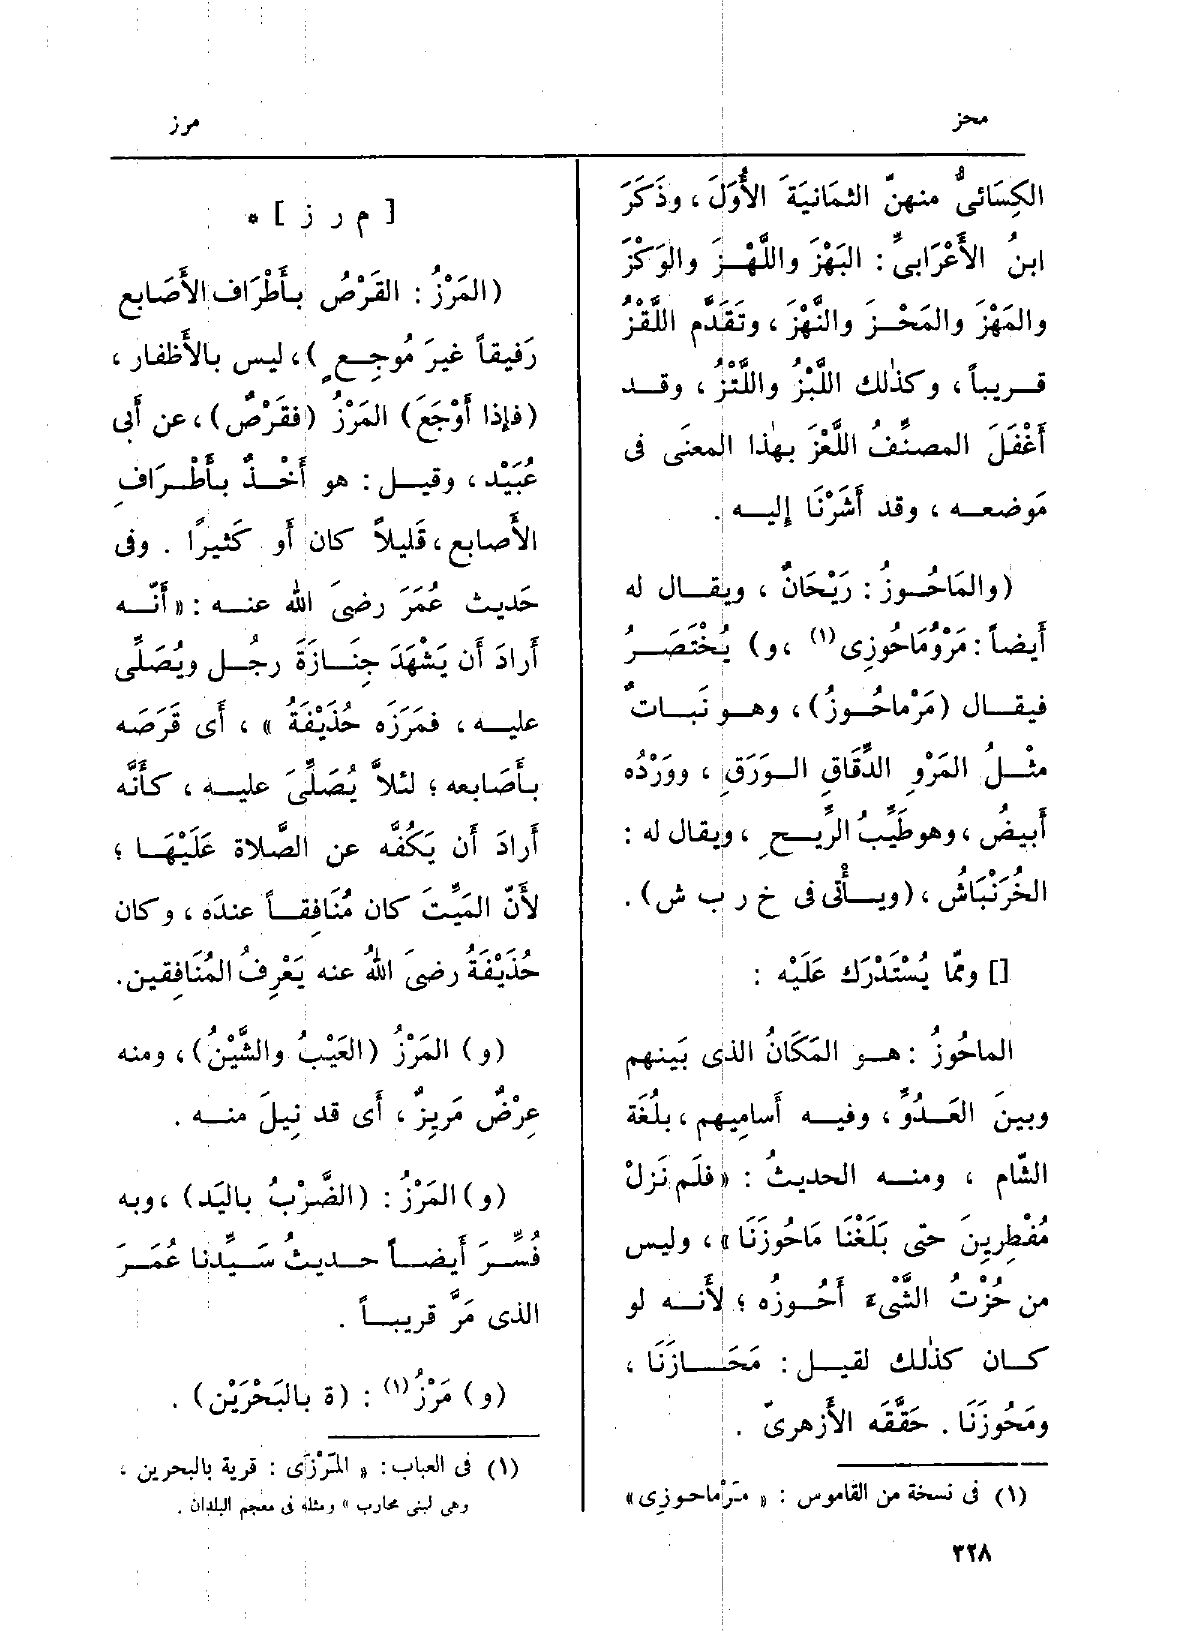 محز
مرز
الكِسَائىُّ منهنّ الثمَانيَةَ الأُوَلَ ، وذَكَرَ
ابنُ الأَعْرَابىِّ : البَهْزَ واللَّهْزَ والوَكْزَ
والمَهْزَ والمَحْزَ والنَّهْزَ ، وتَقَدَّم اللَّقْزُ
قريباً ، وكذٰلك اللَّبْزُ واللَّتْزُ ، وقد
أَغْفَلَ المصنِّفُ اللَّعْزَ بهٰذا المعنَى فى
مَوضعه ، وقد أَشَرْنَا إليه .
(والمَاحُوزُ : رَيْحَانٌ ، ويقال له
أيضاً : مَرْوُمَاحُوزِى (١) ،و) يُخْتَصَرُ
فيقال (مَرْمَاحُوزُ) ، وهو نَبات ٌ
مثْلُ المَرْوِ الدِّقَاقِ الوَرَقِ ، ووَرْدُه
أَبيضُ ، وهو طَيِّبُ الرِّيحِ ، ويقال له :
الخُرَنْبَاشُ ، (ويأْتى فى خ ر ب ش) .
[] وممّا يُسْتَدْرَك عَلَيْه :
الماحُوزُ : هو المَكَانُ الذى بَينهم
وبينَ العَدُوِّ ، وفيه أَسامِيهم ، بلُغَة
الشّام ، ومنه الحديثُ : « فلَم نَزلْ
مُفْطِرِينَ حتى بَلَغْنَا مَاحُوزَنَا » ، وليس
من حُزْتُ الشَّىْءَ أَحُوزُه ؛ لأَنه لو
كان كذٰلك لقيل : مَحَازَنَا ،
ومَحُوزَنَا . حَقَّقَه الأَزهرىّ .
(١) فى نسخة من القاموس : « مَرْماحوزِى »
٣٢٨
[ م ر ز ] *
(المَرْزُ : القَرْصُ بأَطْرَاف الأَصَابع
رَفيقاً غيرَ مُوجِعٍ )، ليس بالأَظفار ،
(فإذا أَوْجَعَ) المَرْزُ (فقَرْصٌ)، عن أَبى
عُبَيْد ، وقيل : هو أَخْذٌ بأَطْرَافِ
الأَصابع ، قَليلاً كان أَو كَثيرًا . وفى
حَديث عُمَرَ رضىَ الله عنه : « أَنّه
أَرادَ أَن يَشْهَدَ جِنَازَةَ رجُل ويُصَلِّى
عليه ، فمَرَزَه حُذَيْفَةُ » ، أَى قَرَصَه
بأَصَابعه ؛ لئلاَّ يُصَلِّىَ عليه ، كأَنَّه
أَرادَ أَن يَكُفَّه عن الصَّلاة عَلَيْهَا ؛
لأَنّ المَيِّتَ كان مُنَافِقاً عندَه ، وكان
حُذَيْفَةُ رضىَ اللهُ عنه يَعْرِفُ المُنَافِقين.
(و) المَرْزُ (العَيْبُ والشَّيْنُ) ، ومنه
عِرْضٌ مَرِيزٌ ، أَى قد نِيلَ منه .
(و) المَرْزُ : (الضَّرْبُ باليَد) ، وبه
فُسِّرَ أَيضاً حديثُ سَيِّدنا عُمَرَ
الذى مَرَّ قريباً .
(و) مَرْزُ (١) : (ة بالبَحْرَيْن) .
(١) فى العباب : « المَرْزَى : قرية بالبحرين ،
وهى لبنى محارب » ومثله فى معجم البلدان .